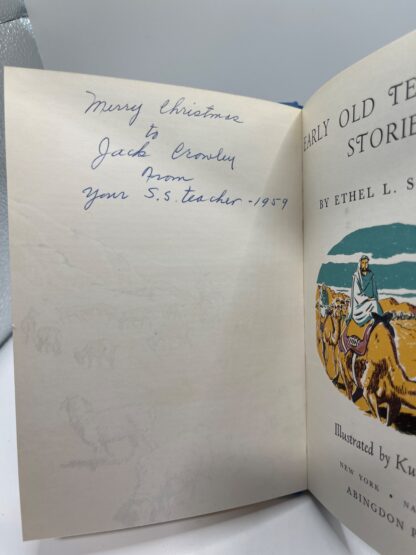 Merry Christmas
to
Jack Crowley
From
your S.S. teacher - 1959
EARLY OLD TE
STORIE
BY ETHEL L. S
Illustrated by Ku
NEW YORK • NA
ABINGDON P